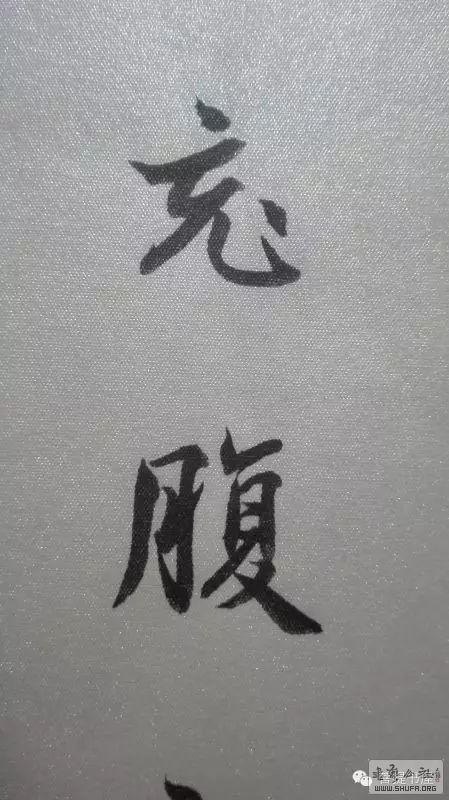 充
腹
菩提书座
WWW.SHUFA.ORG